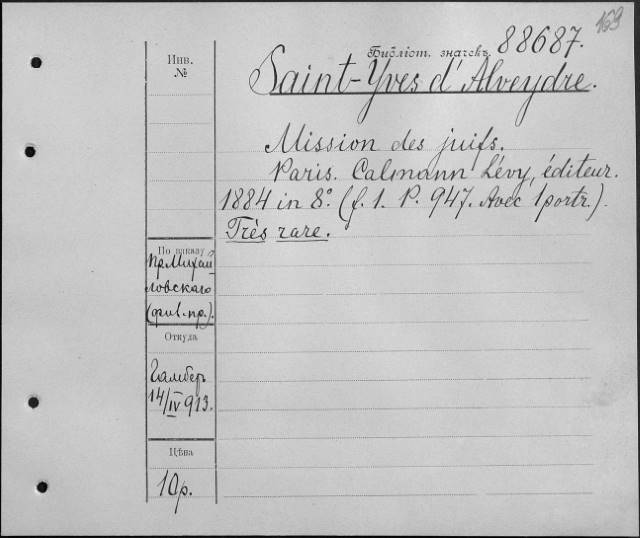 169
Библіот. значекъ 88687.
Инв.
№
Saint-Yves d'Alveydre.
Mission des juifs.
Paris. Calmann Lévy, éditeur.
1884 in 8°. (f. 1. P. 947. Avec 1 portr.).
Très rare.
По заказу
пр. Михай
ловскаго
(фил. пр.).
Откуда
Гамбер
14/IV 913.
Цѣна
10р.